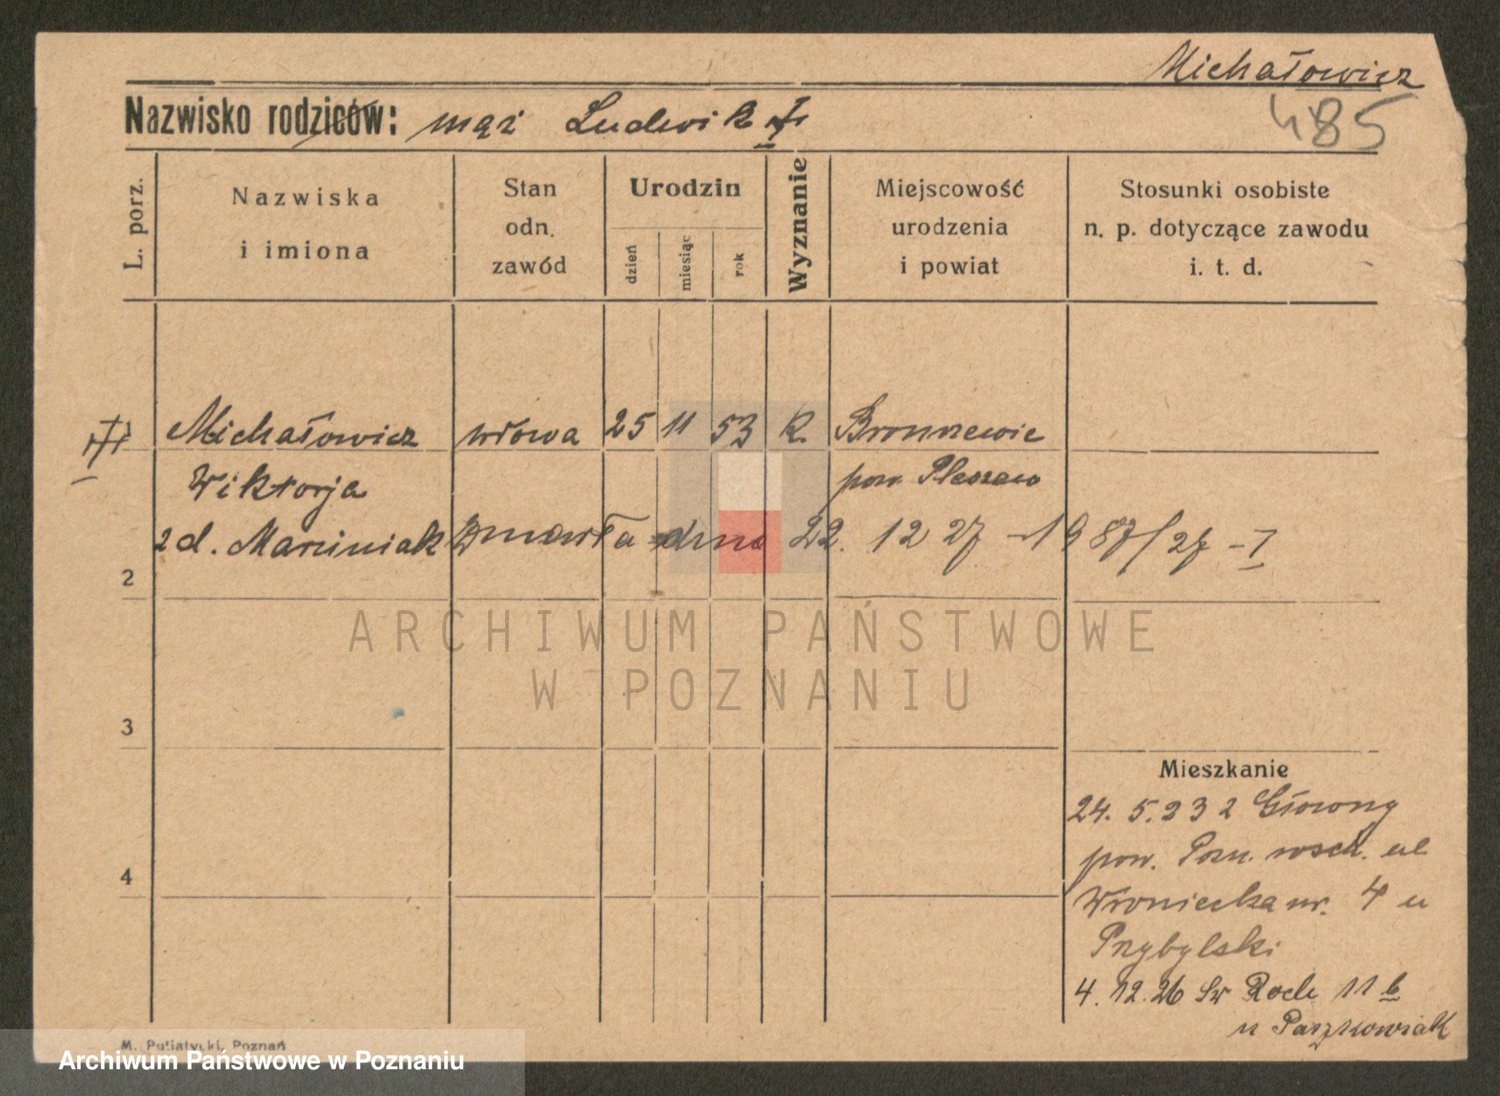 Michałowicz
485
Nazwisko rodziców: mąż Ludwik
L. porz.
Nazwiska
i imiona
Stan
odn.
zawód
Urodzin
dzień
miesiąc
rok
Wyznanie
Miejscowość
urodzenia
i powiat
Stosunki osobiste
n. p. dotyczące zawodu
i. t. d.
Michałowicz wdowa 25 11 53 K.
Wiktorja pow. Pleszew
2 d. Marciniak Zmarła dnia 22. 12 27 - 1987/27 - I
2
3
4
ARCHIWUM PAŃSTWOWE
W POZNANIU
Mieszkanie
24. 5. 932 Główny
pow. Pozn. wsch. ul
Wroniecka nr. 4 u
Przybylski
4. 12. 26 Św Roch 11 b
u Paszkowiak
M. Putiatycki, Poznań
Archiwum Państwowe w Poznaniu